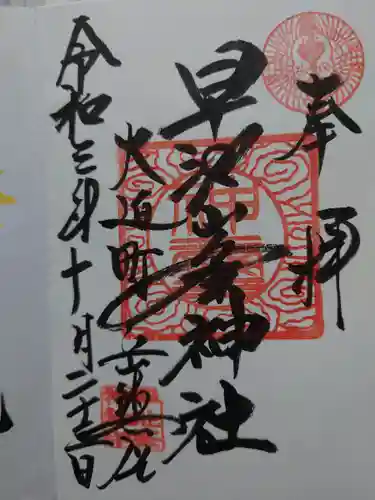 奉拝
早池峯神社
大迫町
令和三年十月二十三日